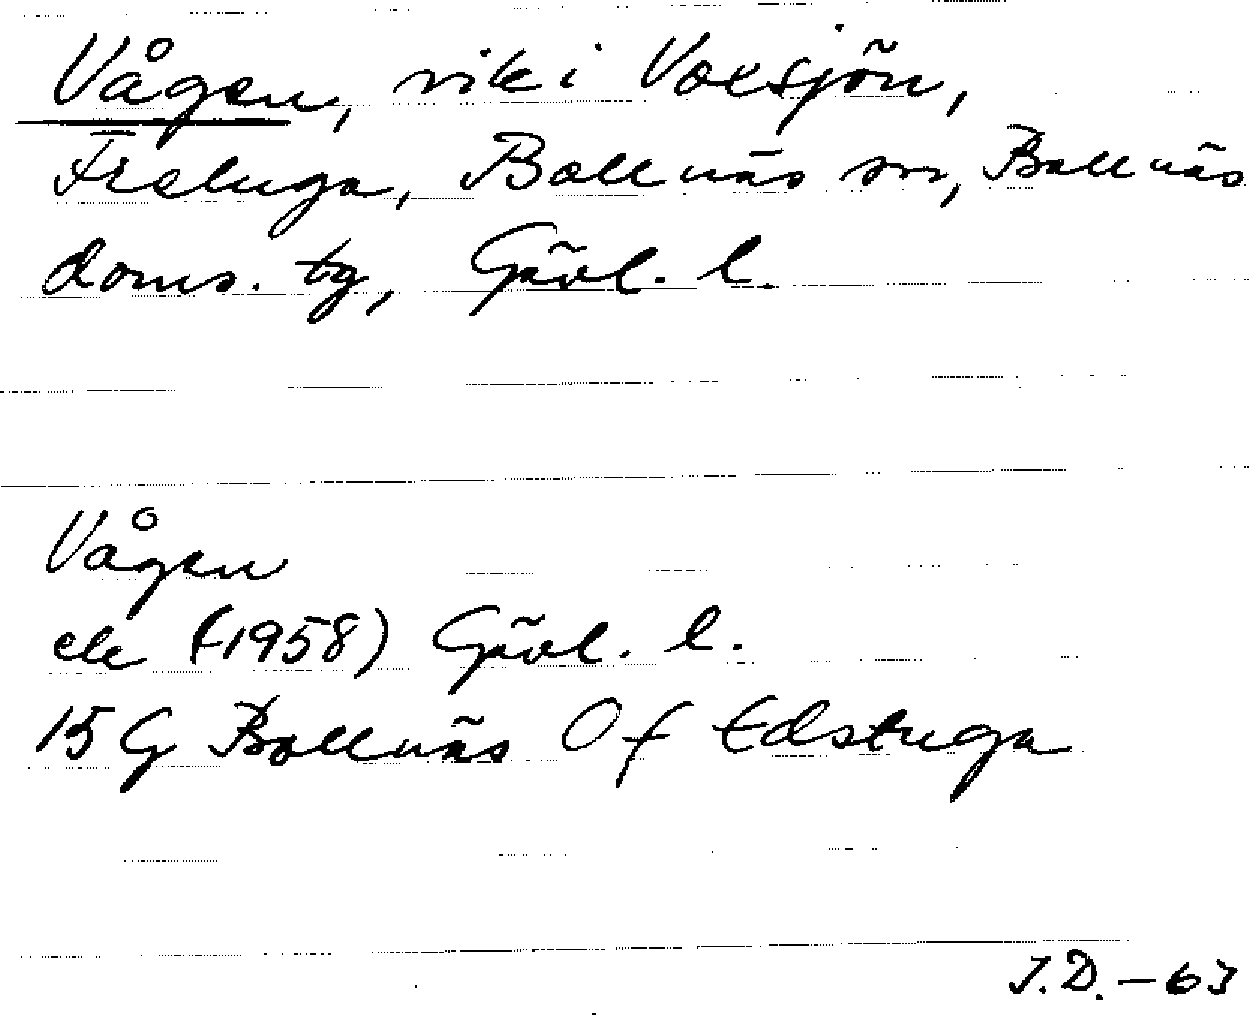 Vågen, vik i Voxsjön,
Freluga, Bollnäs sn, Bollnäs
doms. tg, Gävl. l.
Vågen
ek (1958) Gävl. l.
15 G Bollnäs Of Edstuga
J.D. - 63